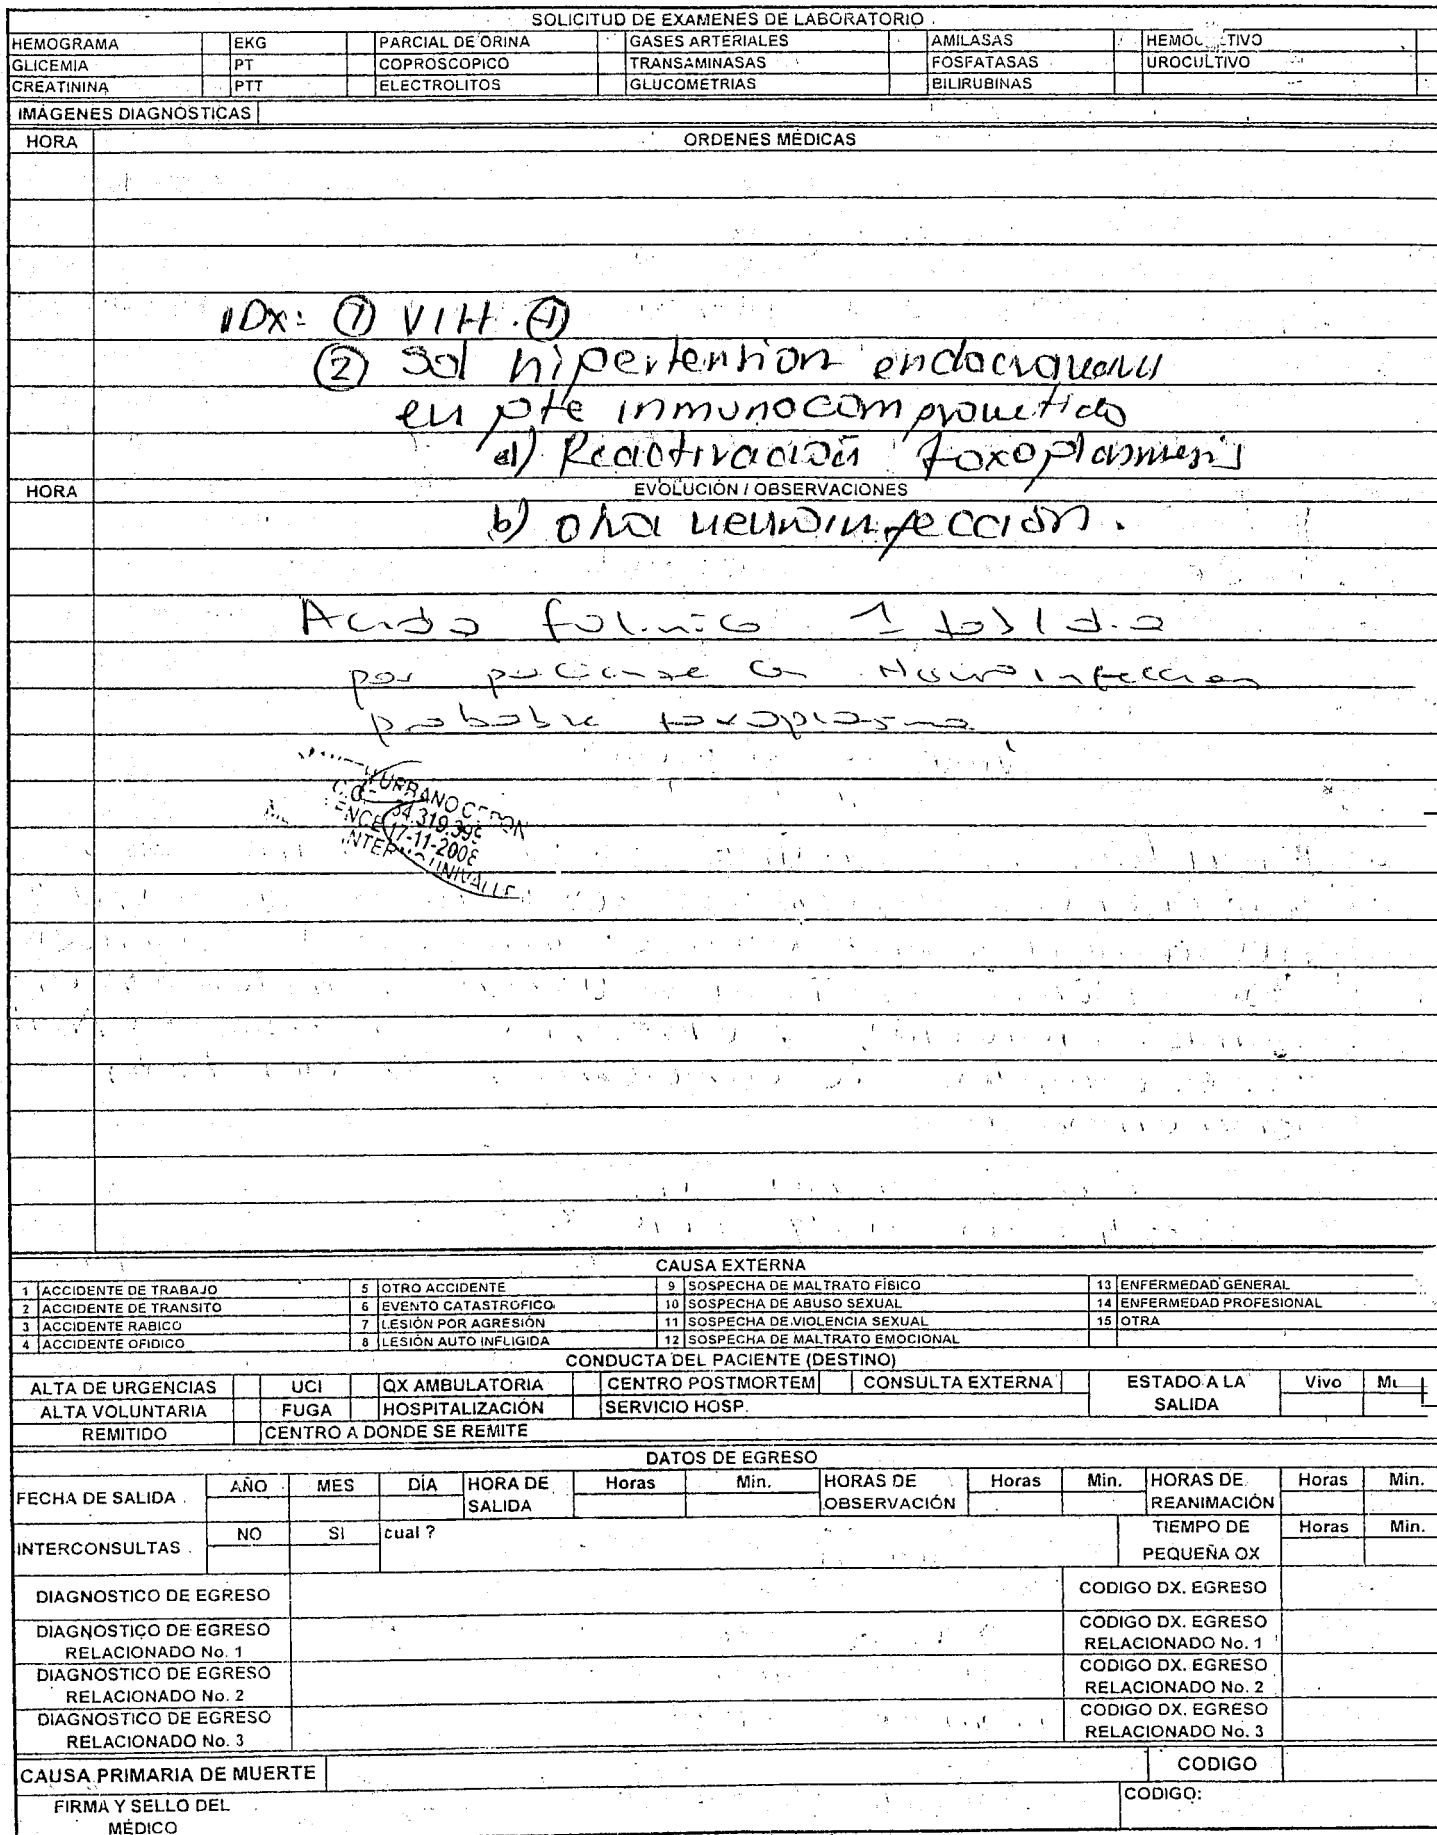 SOLICITUD DE EXAMENES DE LABORATORIO
HEMOGRAMA EKG PARCIAL DE ORINA GASES ARTERIALES AMILASAS
GLICEMIA PT COPROSCOPICO TRANSAMINASAS FOSFATASAS UROCULTIVO
CREATININA PTT ELECTROLITOS GLUCOMETRIAS BILIRUBINAS
IMÁGENES DIAGNÓSTICAS
HORA ORDENES MÉDICAS
IDx: ① VIH. ⊕
② Sd hipertention endocraneana
en pte inmunocomprometido
a) Reactivación toxoplasmosis
HORA EVOLUCIÓN / OBSERVACIONES
b) otra neuroinfección.
Acido folinico 1 tab/dia
por paciente con Neuroinfeccion
probable toxoplasma
URBANO
17-11-2008
UNIVALLE
CAUSA EXTERNA
1 ACCIDENTE DE TRABAJO 5 OTRO ACCIDENTE 9 SOSPECHA DE MALTRATO FÍSICO 13 ENFERMEDAD GENERAL
2 ACCIDENTE DE TRANSITO 6 EVENTO CATASTROFICO 10 SOSPECHA DE ABUSO SEXUAL 14 ENFERMEDAD PROFESIONAL
3 ACCIDENTE RABICO 7 LESIÓN POR AGRESIÓN 11 SOSPECHA DE VIOLENCIA SEXUAL 15 OTRA
4 ACCIDENTE OFIDICO 8 LESIÓN AUTO INFLIGIDA 12 SOSPECHA DE MALTRATO EMOCIONAL
CONDUCTA DEL PACIENTE (DESTINO)
ALTA DE URGENCIAS UCI QX AMBULATORIA CENTRO POSTMORTEM CONSULTA EXTERNA ESTADO A LA Vivo
ALTA VOLUNTARIA FUGA HOSPITALIZACIÓN SERVICIO HOSP. SALIDA
REMITIDO CENTRO A DONDE SE REMITE
DATOS DE EGRESO
FECHA DE SALIDA AÑO MES DÍA HORA DE SALIDA Horas Min. HORAS DE OBSERVACIÓN Horas Min. HORAS DE REANIMACIÓN Horas Min.
INTERCONSULTAS NO SI cual ? TIEMPO DE PEQUEÑA QX Horas Min.
DIAGNOSTICO DE EGRESO CODIGO DX. EGRESO
DIAGNOSTICO DE EGRESO CODIGO DX. EGRESO
RELACIONADO No. 1 RELACIONADO No. 1
DIAGNOSTICO DE EGRESO CODIGO DX. EGRESO
RELACIONADO No. 2 RELACIONADO No. 2
DIAGNOSTICO DE EGRESO CODIGO DX. EGRESO
RELACIONADO No. 3 RELACIONADO No. 3
CAUSA PRIMARIA DE MUERTE CODIGO
FIRMA Y SELLO DEL CODIGO:
MÉDICO